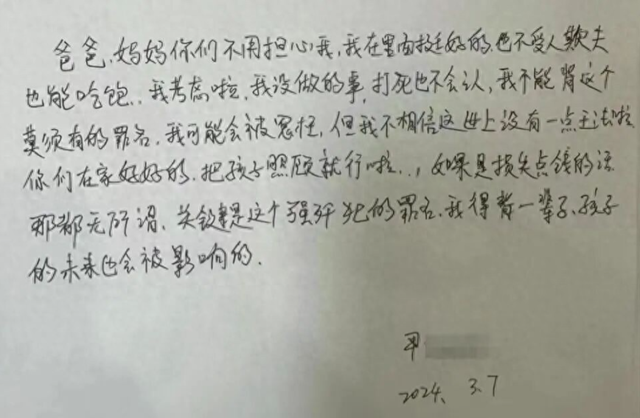 爸爸、妈妈你们不用担心我,我在里面挺好的,也不受人欺夫
也能吃饱..我考虑啦,我没做的事,打死也不会认,我不能背这个
莫须有的罪名,我可能会被冤枉,但我不相信这世上没有一点王法啦
你们在家好好的,把孩子照顾就行啦..,如果是损失点钱的话
那都无所谓、关键是这个强奸犯的罪名,我得背一辈子、孩子
的未来也会被影响的.
甲
2024、3.7